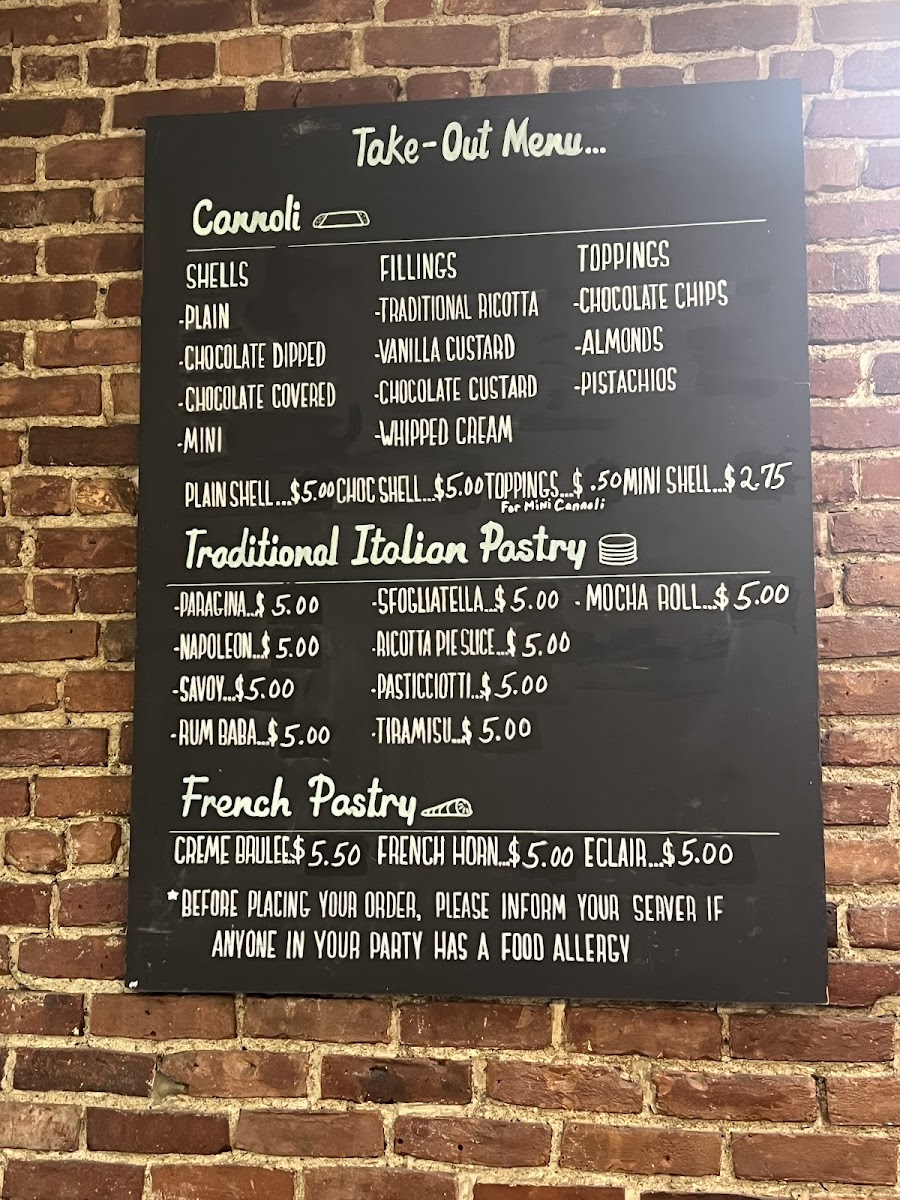 Take-Out Menu...
Cannoli
SHELLS FILLINGS TOPPINGS
-PLAIN -TRADITIONAL RICOTTA -CHOCOLATE CHIPS
-CHOCOLATE DIPPED -VANILLA CUSTARD -ALMONDS
-CHOCOLATE COVERED -CHOCOLATE CUSTARD -PISTACHIOS
-MINI -WHIPPED CREAM
PLAIN SHELL...$5.00 CHOC SHELL...$5.00 TOPPINGS...$ .50 MINI SHELL...$2.75
For Mini Cannoli
Traditional Italian Pastry
-PARAGINA...$ 5.00 -SFOGLIATELLA...$5.00 -MOCHA ROLL...$5.00
-NAPOLEON...$ 5.00 -RICOTTA PIE SLICE...$ 5.00
-SAVOY...$5.00 -PASTICCIOTTI...$5.00
-RUM BABA...$5.00 -TIRAMISU...$ 5.00
French Pastry
CREME BRULEE.$5.50 FRENCH HORN...$5.00 ECLAIR...$5.00
*BEFORE PLACING YOUR ORDER, PLEASE INFORM YOUR SERVER IF
ANYONE IN YOUR PARTY HAS A FOOD ALLERGY